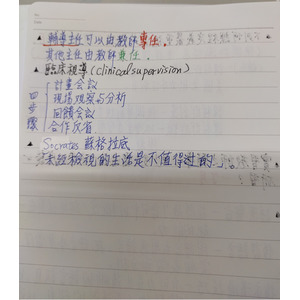 ▲輔導主任可以由教師專任.
其他主任由教師兼任.
▲臨床視導(clinical supervision)
四步驟
計畫会議
現場观察与分析
回饋会議
合作反省
Socrates 蘇格拉底
「未經檢視的生活是不值得过的」